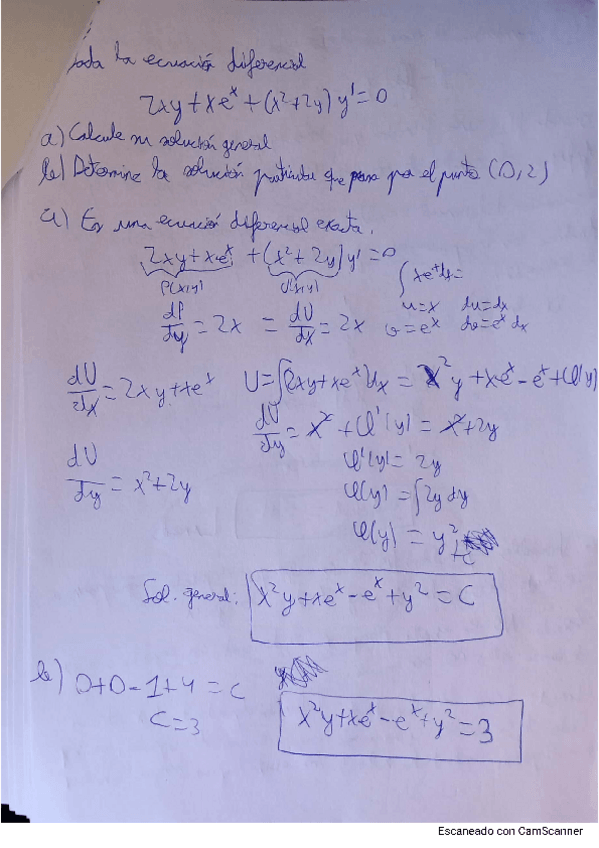 Dada la ecuación diferencial
2xy+xeˣ+(x²+2y)y'=0
a) Calcule su solución general
b) Determine la solución particular que pasa por el punto (0,2)
a) Es una ecuación diferencial exacta.
2xy+xeˣ+(x²+2y)y'=0
P(x,y)
∫xeˣdx=
u=x du=dx
v=eˣ dv=eˣdx
dP/dy=2x = dU/dx=2x
dU/dx=2xy+xeˣ U=∫(2xy+xeˣ)dx=x²y+xeˣ-eˣ+φ(y)
dU/dy=x²+φ'(y)=x²+2y
dU/dy=x²+2y
φ'(y)=2y
φ(y)=∫2y dy
φ(y)=y²
+C
Sol. general: x²y+xeˣ-eˣ+y²=C
b) 0+0-1+4=C
C=3
x²y+xeˣ-eˣ+y²=3
Escaneado con CamScanner